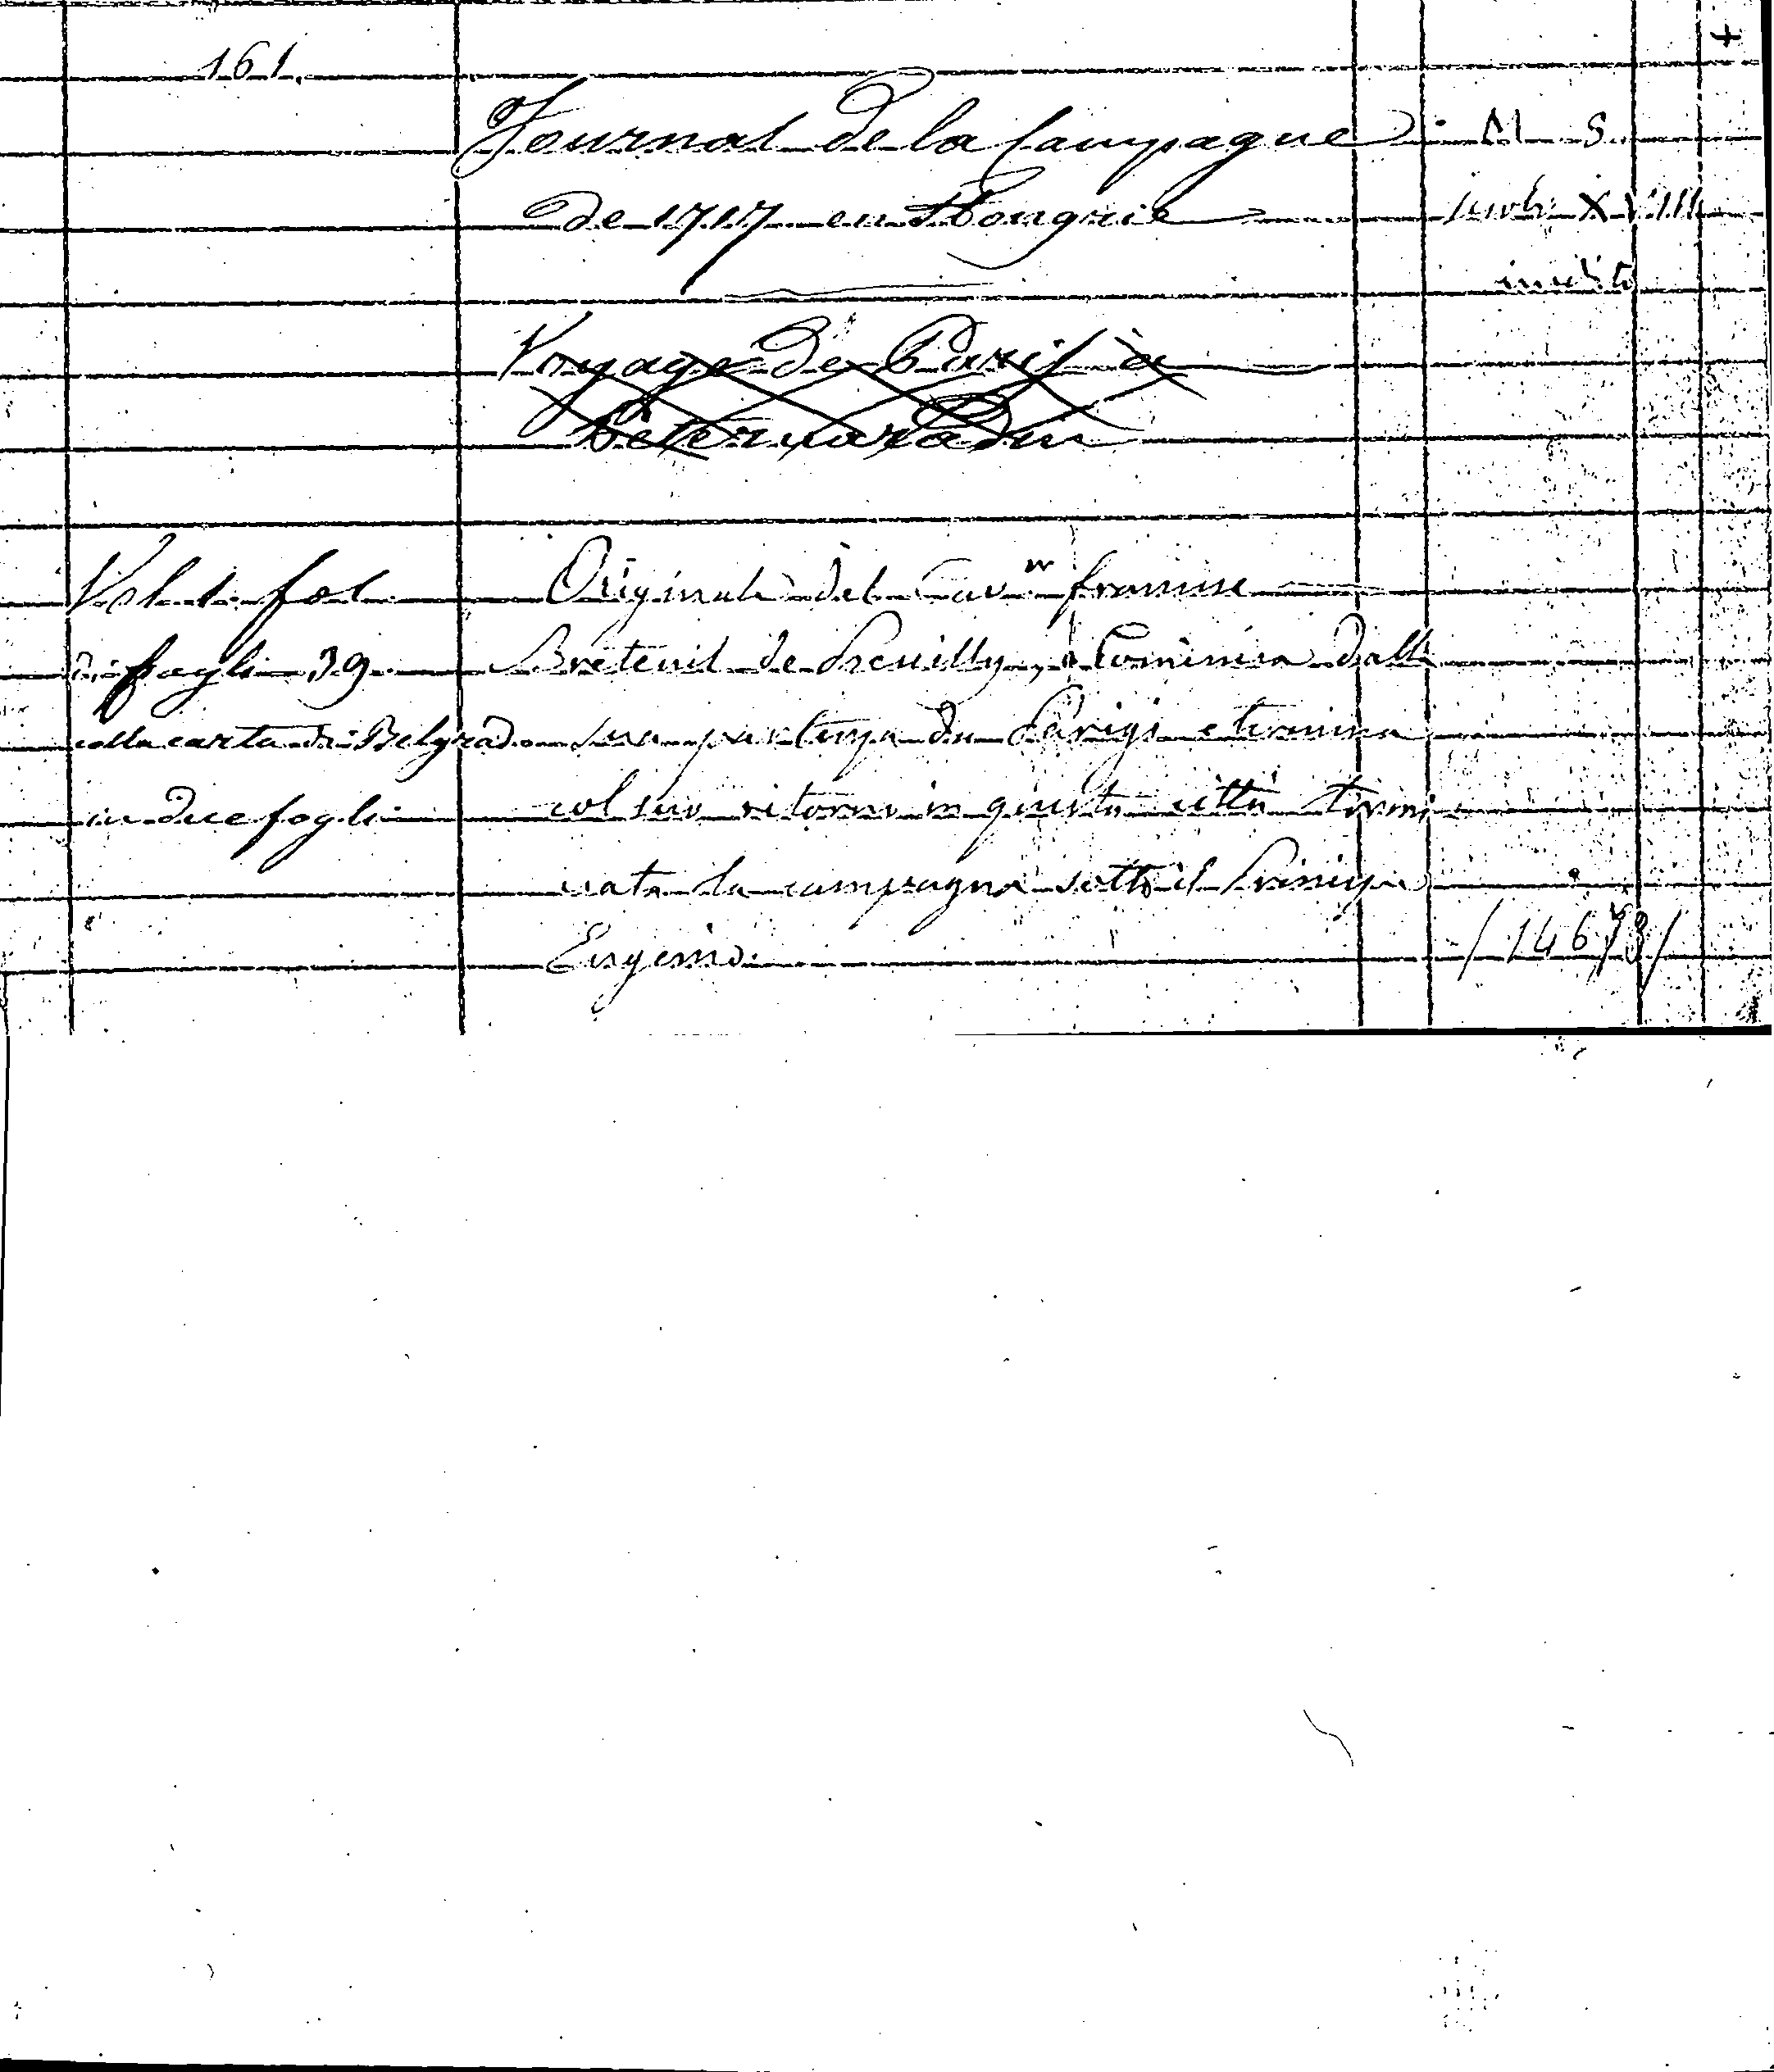 161.
Journal de la Campagne
M. S.
de 1717 en Hongrie
secolo XVIII
inedito
Voyage de Paris à
Petervaradin
Vol. 1. fol.
Originale del Cav.r francese
di fogli 39.
Breteuil de Preuilly, Comincia dalla
colla carta di Belgrado
sua partenza da Parigi e termina
in due fogli
col suo ritorno in questa città termi-
nata la campagna sotto il Principe
Eugenio.
/14673/